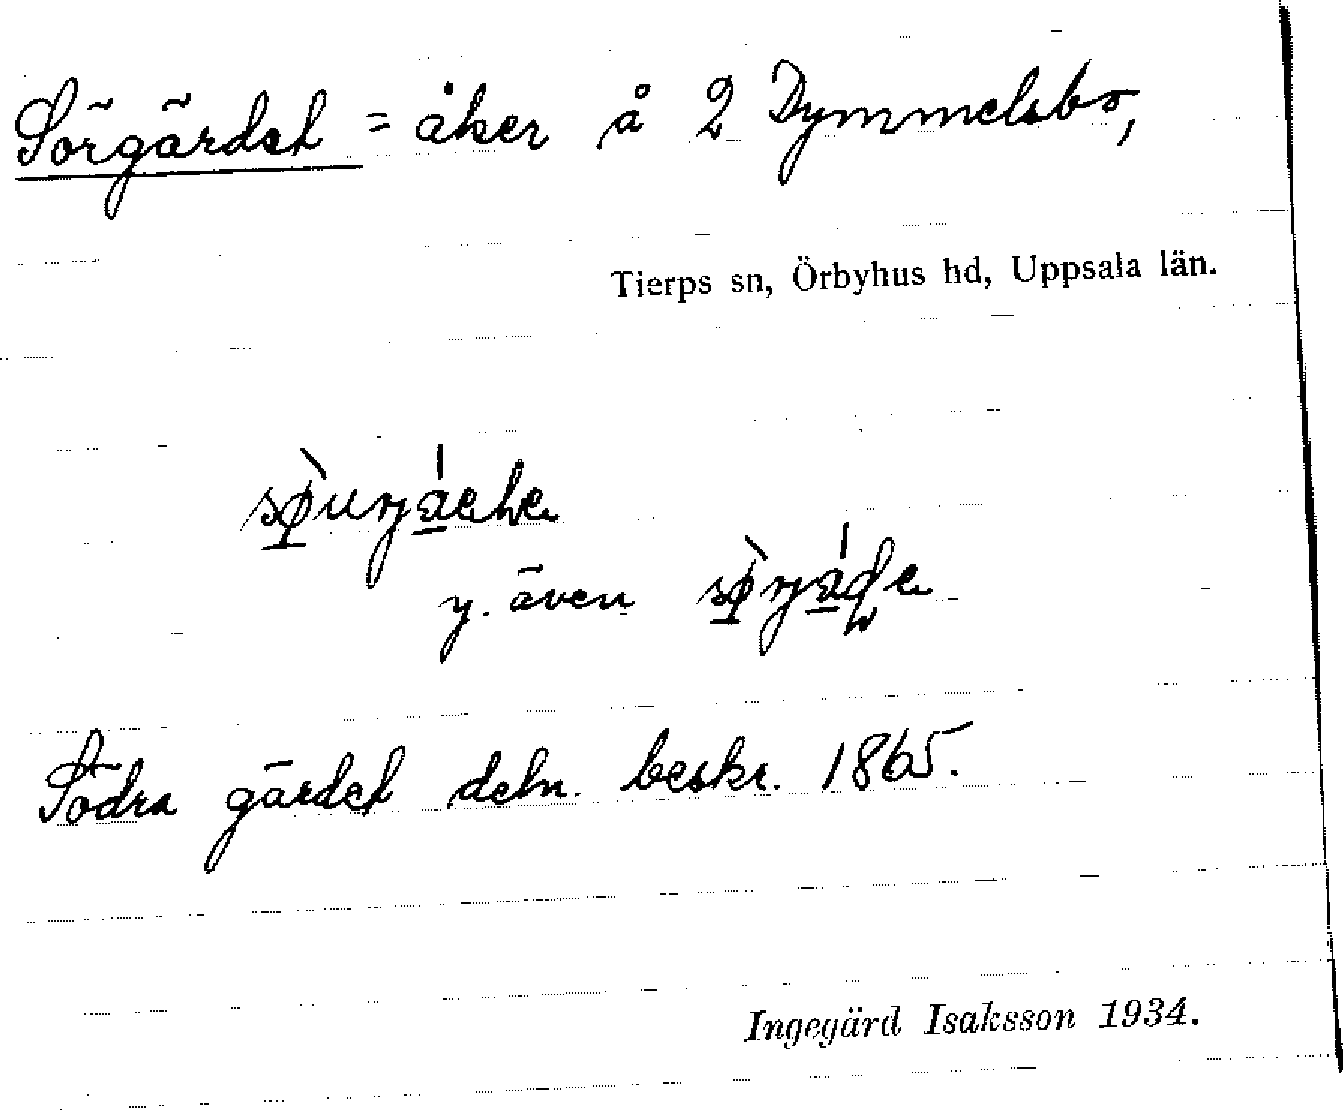 Sörgärdet = åker å 2 Dymmelsbo,
Tierps sn, Örbyhus hd, Uppsala län.
y. även
Södra gärdet deln. beskr. 1865.
Ingegärd Isaksson 1934.